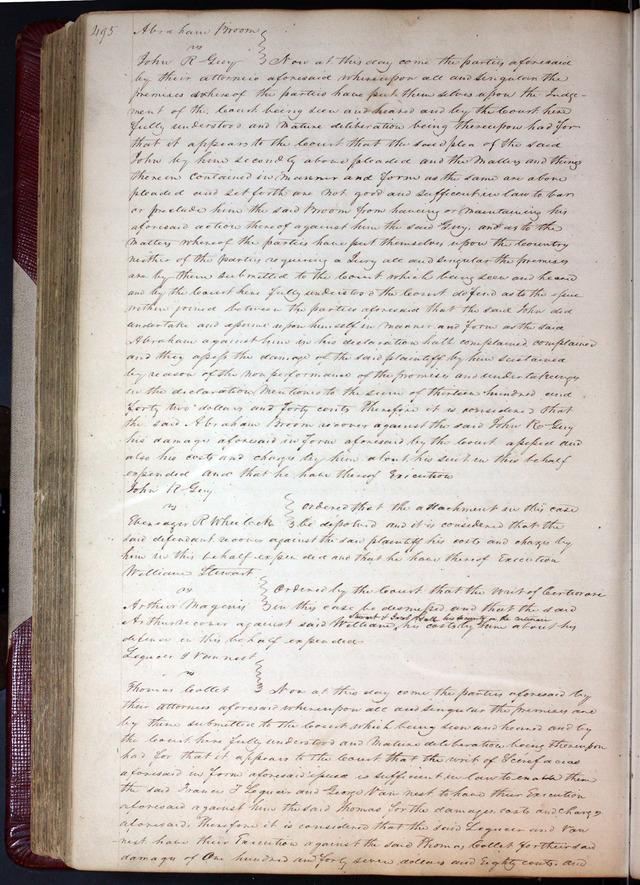 495 Abraham Broom
vs
John R Guy Now at this day come the parties aforesaid
by their attornies aforesaid whereupon all and Singular the
premises whereof the parties have put themselves upon the Judge-
ment of the Court being seen and heard and by the Court here
fully understood and Mature deliberation being thereupon had for
that it appears to the Court that the said plea of the said
John by him secondly above pleaded and the Matters and things
therein contained in Manner and form as the same are above
pleaded and set forth are not good and sufficient in law to bar
or preclude him the said Broom from having or maintaining his
aforesaid action thereof against him the said Guy. and as to the
Matters whereof the parties have put themselves upon the Country
neither of the parties requiring a Jury all and singular the premises
are by them submitted to the Court which being seen and heard
and by the Court here fully understood the Court as to the issue
joined between the parties aforesaid that the said John did
undertake and assume upon himself in Manner and form as the said
Abraham against him in his declaration hath complained complained
and they assess the damage of the said plaintiff by him sustained
by reason of the nonperformance of the promises and undertakings
in the declaration Mentioned to the sum of thirteen hundred and
forty two dollars and forty cents Therefore it is considered that
the said Abraham Broom recover against the said John R Guy
his damage aforesaid in form aforesaid by the Court assessed and
also his costs and charges by him about his suit in this behalf
expended and that he have thereof Execution
John R Guy
vs ordered that the attachment in this case
Ebenezer R Wheelock be and it is considered that the
said defendant recover against the said plaintiff his costs and charges by
him in this behalf expended and that he have thereof Execution
William Stewart
vs Ordered by the Court that the Writ of Certiorari
Arthur Magenis in this case be dismissed and that the said
Stewart & Hall his security in the
Arthur recover against said William, his costs by him about his
defence in this behalf expended
Lequeer & Vannest
vs
Thomas Collet Now at this day come the parties aforesaid by
their attornies aforesaid whereupon all and singular the premises are
by them submitted to the Court which being seen and heard and by
the Court here fully understood and Mature deliberation being thereupon
had for that it appears to the Court that the writ of Scire facias
aforesaid in form aforesaid issued is sufficient in law to enable them
the said Francis T Lequeer and George Van nest to have their Execution
aforesaid against him the said Thomas for the damages costs and charges
aforesaid. Therefore it is considered that the said Lequeer and Van
nest have their Execution against the said Thomas Collet for their said
damages of One hundred and forty seven dollars and Eighty cents and